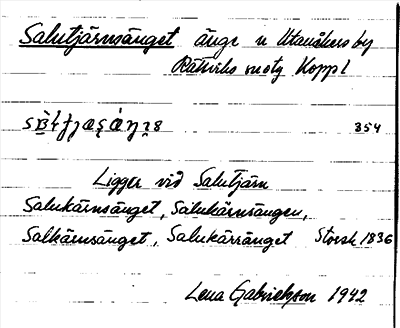 Salutjärnsänget änge n Utanåkers by
Rättviks
Kopp l
354
Ligger vid Salutjärn
Salukärnsänget, Salukärnsängen,
Salkärnsänget, Salukärränget Storsk 1836
Lena Gabrielsson 1942